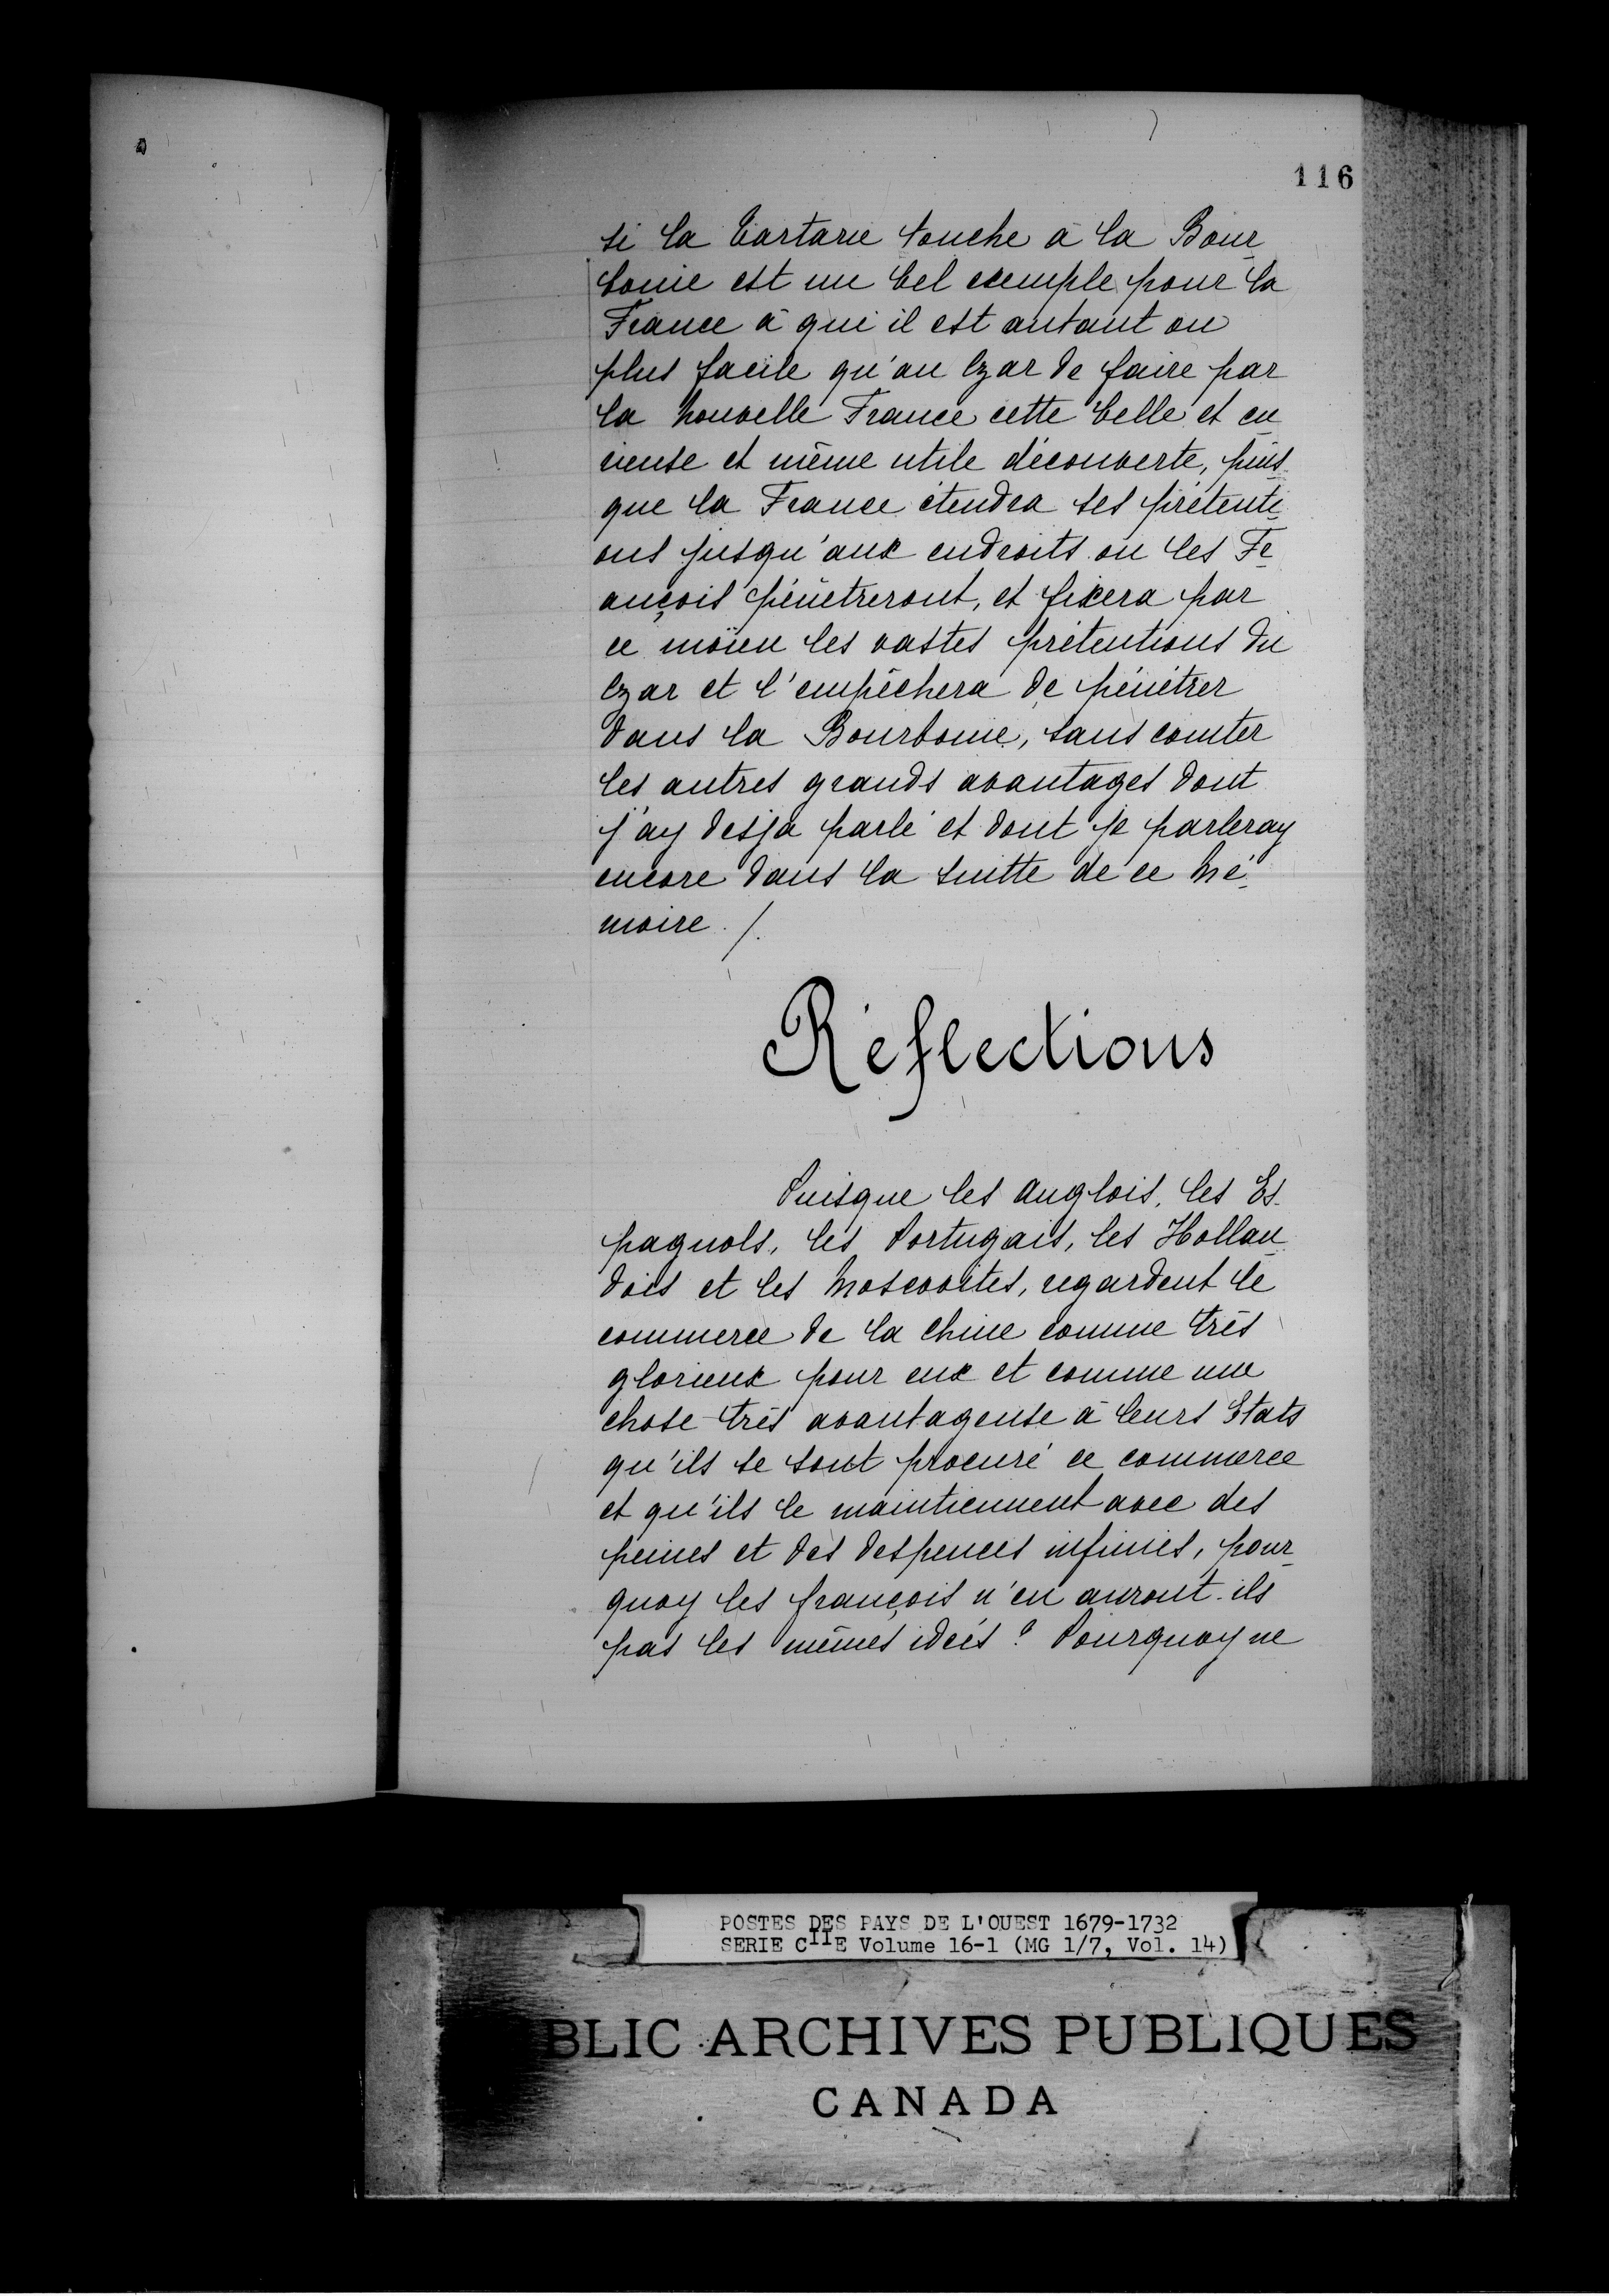 116
si la Tartarie touche à la Bour
bonie est un bel exemple pour la
France à qui il est autant ou
plus facile qu'au Czar de faire par
la Nouvelle France cette belle et cu
rieuse et même utile découverte, puis
que la France étendra ses prétenti
ons jusqu'aux endroits ou les Fr
ançois pénétreront, et fixera par
ce moïen les vastes prétentions du
Czar et l'empêchera de pénétrer
dans la Bourbonie, sans comter
les autres grands avantages dont
j'ay desja parlé et dont je parleray
encore dans la suitte de ce Mé
moire ./.
Réflections
Puisque les Anglois, les Es
pagnols, les Portugais, les Hollan
dois et les Moscovites, regardent le
commerce de la Chine comme très
glorieux pour eux et comme une
chose très avantageuse à leurs Etats
qu'ils se sont procuré ce commerce
et qu'ils le maintiennent avec des
peines et des despences infinies, pour
quoy les françois n'en auront-ils
pas les mêmes idées ? Pourquoy ne
POSTES DES PAYS DE L'OUEST 1679-1732
SERIE CIIE Volume 16-1 (MG 1/7, Vol. 14)
BLIC ARCHIVES PUBLIQUES
CANADA